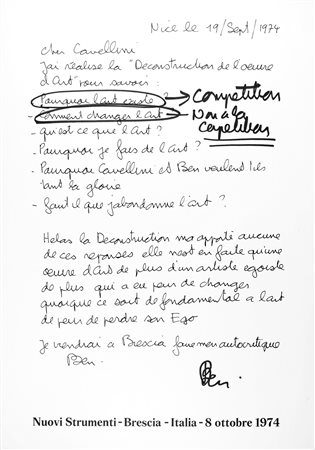 Nice le 19/Sept/1974
cher Cavellini
J'ai réalisé la "Deconstruction de l'oeuvre
d'Art" pour savoir :
Pourquoi l'art existe ? → Competition
- Comment changer l'Art → Non à la
- qu'est ce que l'Art ? Competition
- Pourquoi je fais de l'art ?
- Pourquoi Cavellini et Ben veulent ils
tant la gloire
- faut il que j'abandonne l'art ?
Helas la Deconstruction m'a apporté aucune
de ces reponses elle n'est en faite qu'une
œuvre d'Art de plus d'un artiste egoiste
de plus qui a eu peur de changer
quoique ce soit de fondamental a l'art
de peur de perdre son Ego
Je viendrai a Brescia faire mon autocritique
Ben.
Ben.
Nuovi Strumenti - Brescia - Italia - 8 ottobre 1974